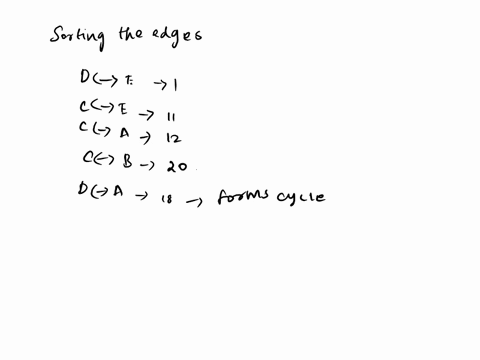 Sorting the edges
D(-> E -> 1
C(-> E -> 11
C(-> A -> 12
C(-> B -> 20
D(-> A -> 18 -> forms cycle